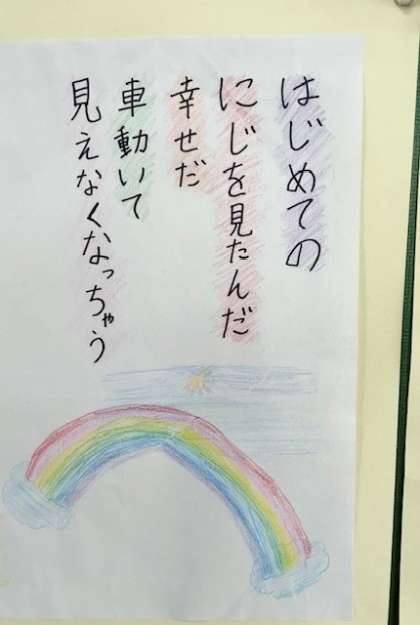 はじめての
にじを見たんだ
幸せだ
車動いて
見えなくなっちゃう